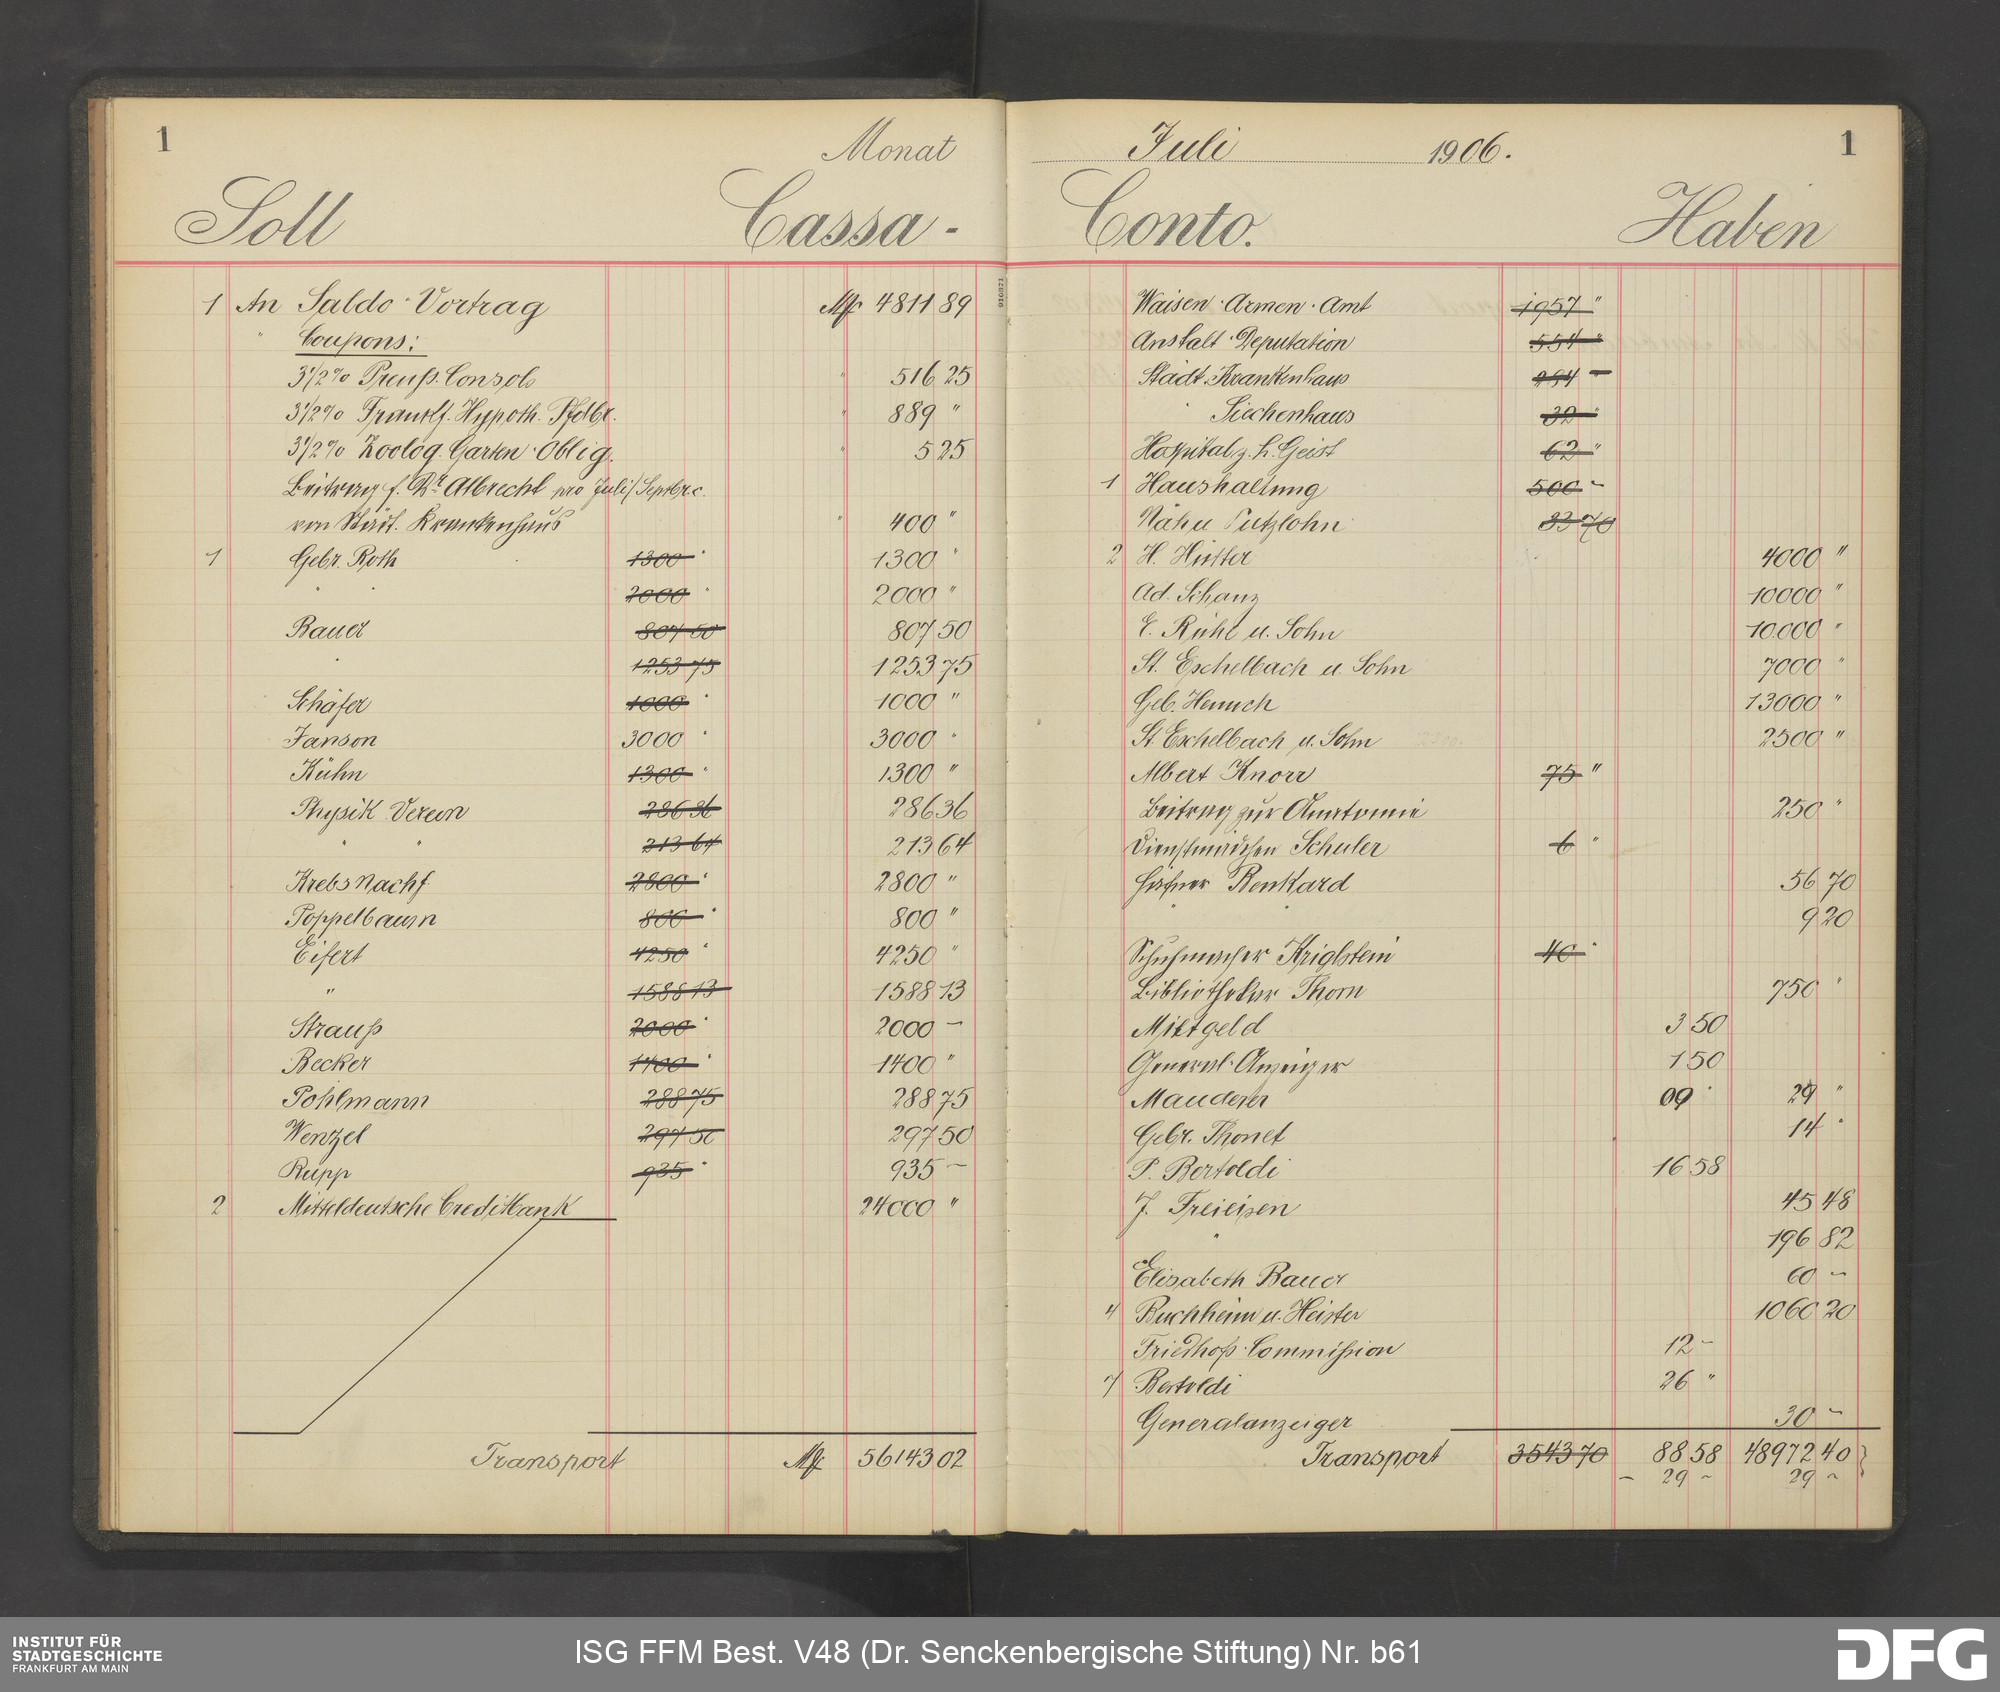 1
Monat
Soll
Cassa-
1 An Saldo-Vortrag M 4811 89
" Coupons:
3 1/2 % Preuß. Consols " 516 25
3 1/2 % Frankf. Hypoth. Pfdbr. " 889 "
3 1/2 % Zoolog. Garten-Oblig. " 5 25
Beitrag f. Dr. Albrecht pro Juli/Septbr. c.
von Städt. Krankenhaus " 400 "
1 Gebr. Roth 1300 " 1300 "
" " 2000 " 2000 "
Bauer 807 50 807 50
" 1253 75 1253 75
Schäfer 1000 " 1000 "
Janson 3000 " 3000 "
Kühn 1300 " 1300 "
Physik. Verein 286 36 286 36
" " 213 64 213 64
Krebs Nachf. 2800 " 2800 "
Poppelbaum 800 " 800 "
Eifert 4250 " 4250 "
" 1588 13 1588 13
Strauß 2000 " 2000 –
Becker 1400 " 1400 "
Pohlmann 288 75 288 75
Wenzel 297 50 297 50
Rupp 935 " 935 –
2 Mitteldeutsche Creditbank 24000 "
Transport M 56143 02
Juli 1906.
1
Conto.
Haben
910821
Waisen-Armen-Amt 1957 "
Anstalt-Deputation 554 "
Städt. Krankenhaus 294 –
" Siechenhaus 32 "
Hospital z. h. Geist 62 "
1 Haushaltung 500 –
Näh u Putzlohn 33 70
2 H. Hütter 4000 "
Ad. Schanz 10000 "
E. Rühl u. Sohn 10.000 "
St. Eschelbach u. Sohn 7000 "
Geb. Henrich 13000 "
St. Eschelbach u. Sohn 2500 "
Albert Knorr 75 "
Beitrag zur Anatomie 250 "
Dienstmädchen Schuler 6 "
Häfner Renkard 56 70
" " 9 20
Schuhmacher Kriglstein 40 "
Bibliothekar Thorn 750 "
Mietgeld 3 50
General-Anzeiger 1 50
Mauderer 09 " 29 "
Gebr. Thonet 14 "
P. Bertoldi 16 58
J. Freieisen 45 48
" 196 82
Elisabeth Bauer 60 –
4 Buchheim u. Heister 1060 20
Friedhofs-Commission 12 –
7 Bertoldi 26 "
Generalanzeiger 30 –
Transport 3543 70 88 58 48972 40
– 29 – 29 –
INSTITUT FÜR
STADTGESCHICHTE
FRANKFURT AM MAIN
ISG FFM Best. V48 (Dr. Senckenbergische Stiftung) Nr. b61
DFG